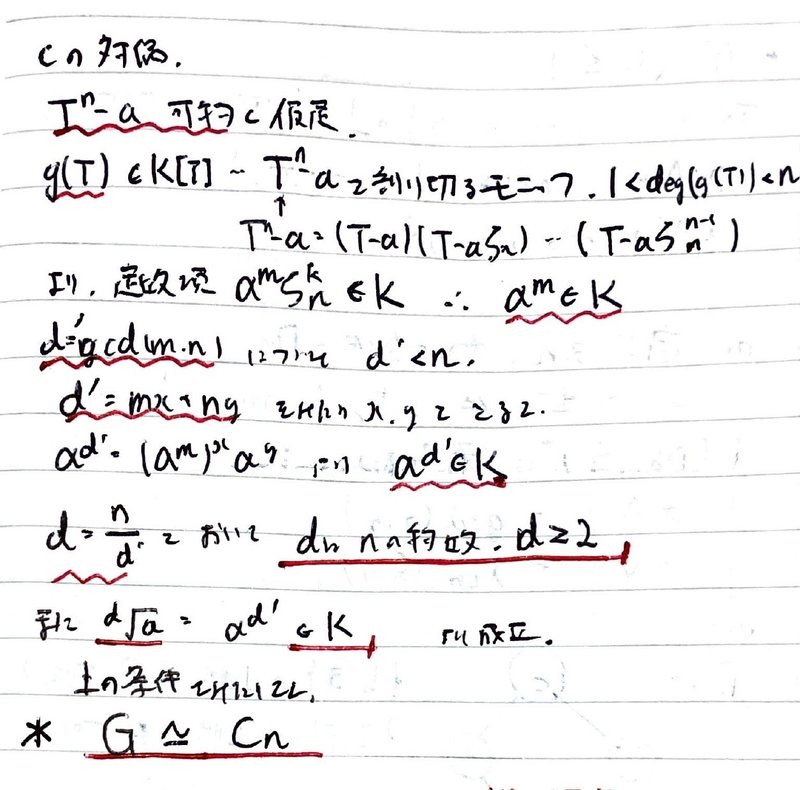 Cの対偶.
T^n-a 可約と仮定.
g(T) ∈ K[T] - T^n-a を割り切るモニック. 1<deg(g(T))<n
↑
T^n-a = (T-α)(T-αζn) … (T-αζ_n^{n-1})
より. 定数項 α^m ζ_n^k ∈ K ∴ α^m ∈ K
d'=gcd(m.n) について d'<n.
d' = mx+ny をみたす x.y をとると.
α^{d'} = (α^m)^x a^y より α^{d'} ∈ K
d = n/d' とおいて dは nの約数. d≥2
更に ^d√a = α^{d'} ∈ K が成立.
上の条件をみたした.
* G ≃ Cn